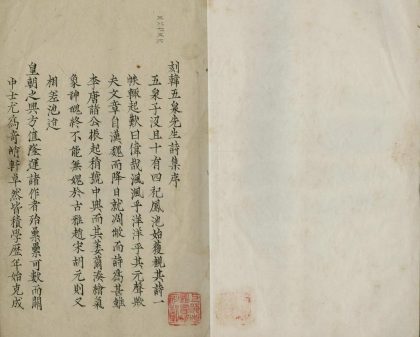 刻韓五泉先生詩集序
五泉子沒且十有四祀鳳池始獲覩其詩一
帙輒起歎曰偉哉渢渢乎洋洋乎其元聲歟
夫文章自漢魏而降日就凋敝而詩為甚雖
李唐諸公振起稍號中興而其萎薾湊繪氣
象神終不能無媿於古雅趙宋胡元則又
相差池迨
皇朝之興方值隆運諸作者殆纍纍可數而關
中士尤為奇崛軒卓然皆積學歷年始克成